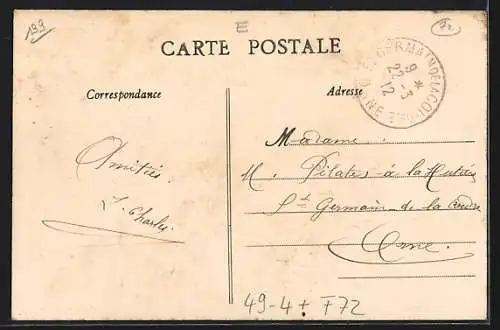 199
E
F2
CARTE POSTALE
Correspondance
Adresse
ST GERMAIN DE LA COUDRE
9 *
22 - 3
12
ORNE
Amitiés.
Madame.
M. Pilates à la
St Germain - de - la Coudre
Orne.
49-4+ F72